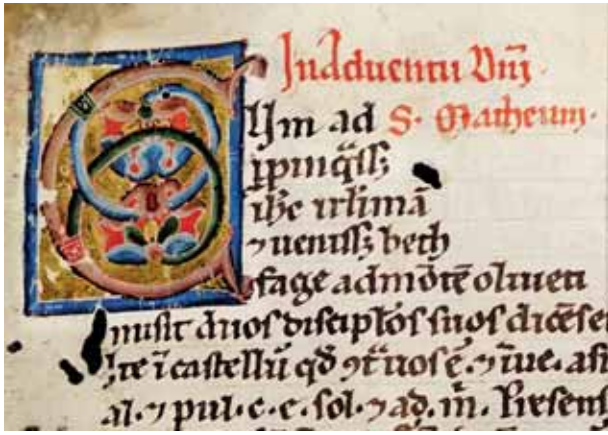 In Aduentu Dm̄.
C Um ad S. Matheum.
ppinq̄ssꝫ
ih̄c irl̄imā
⁊ uenissꝫ beth
fage ad mōtē oliueti
misit duos discip̄los suos dicēſ
Ite ī castellū qd̄ ꝯt̄ uos ē. ⁊ īue. asi
al. ⁊ pul. c. e. sol. ⁊ ad. m̄.